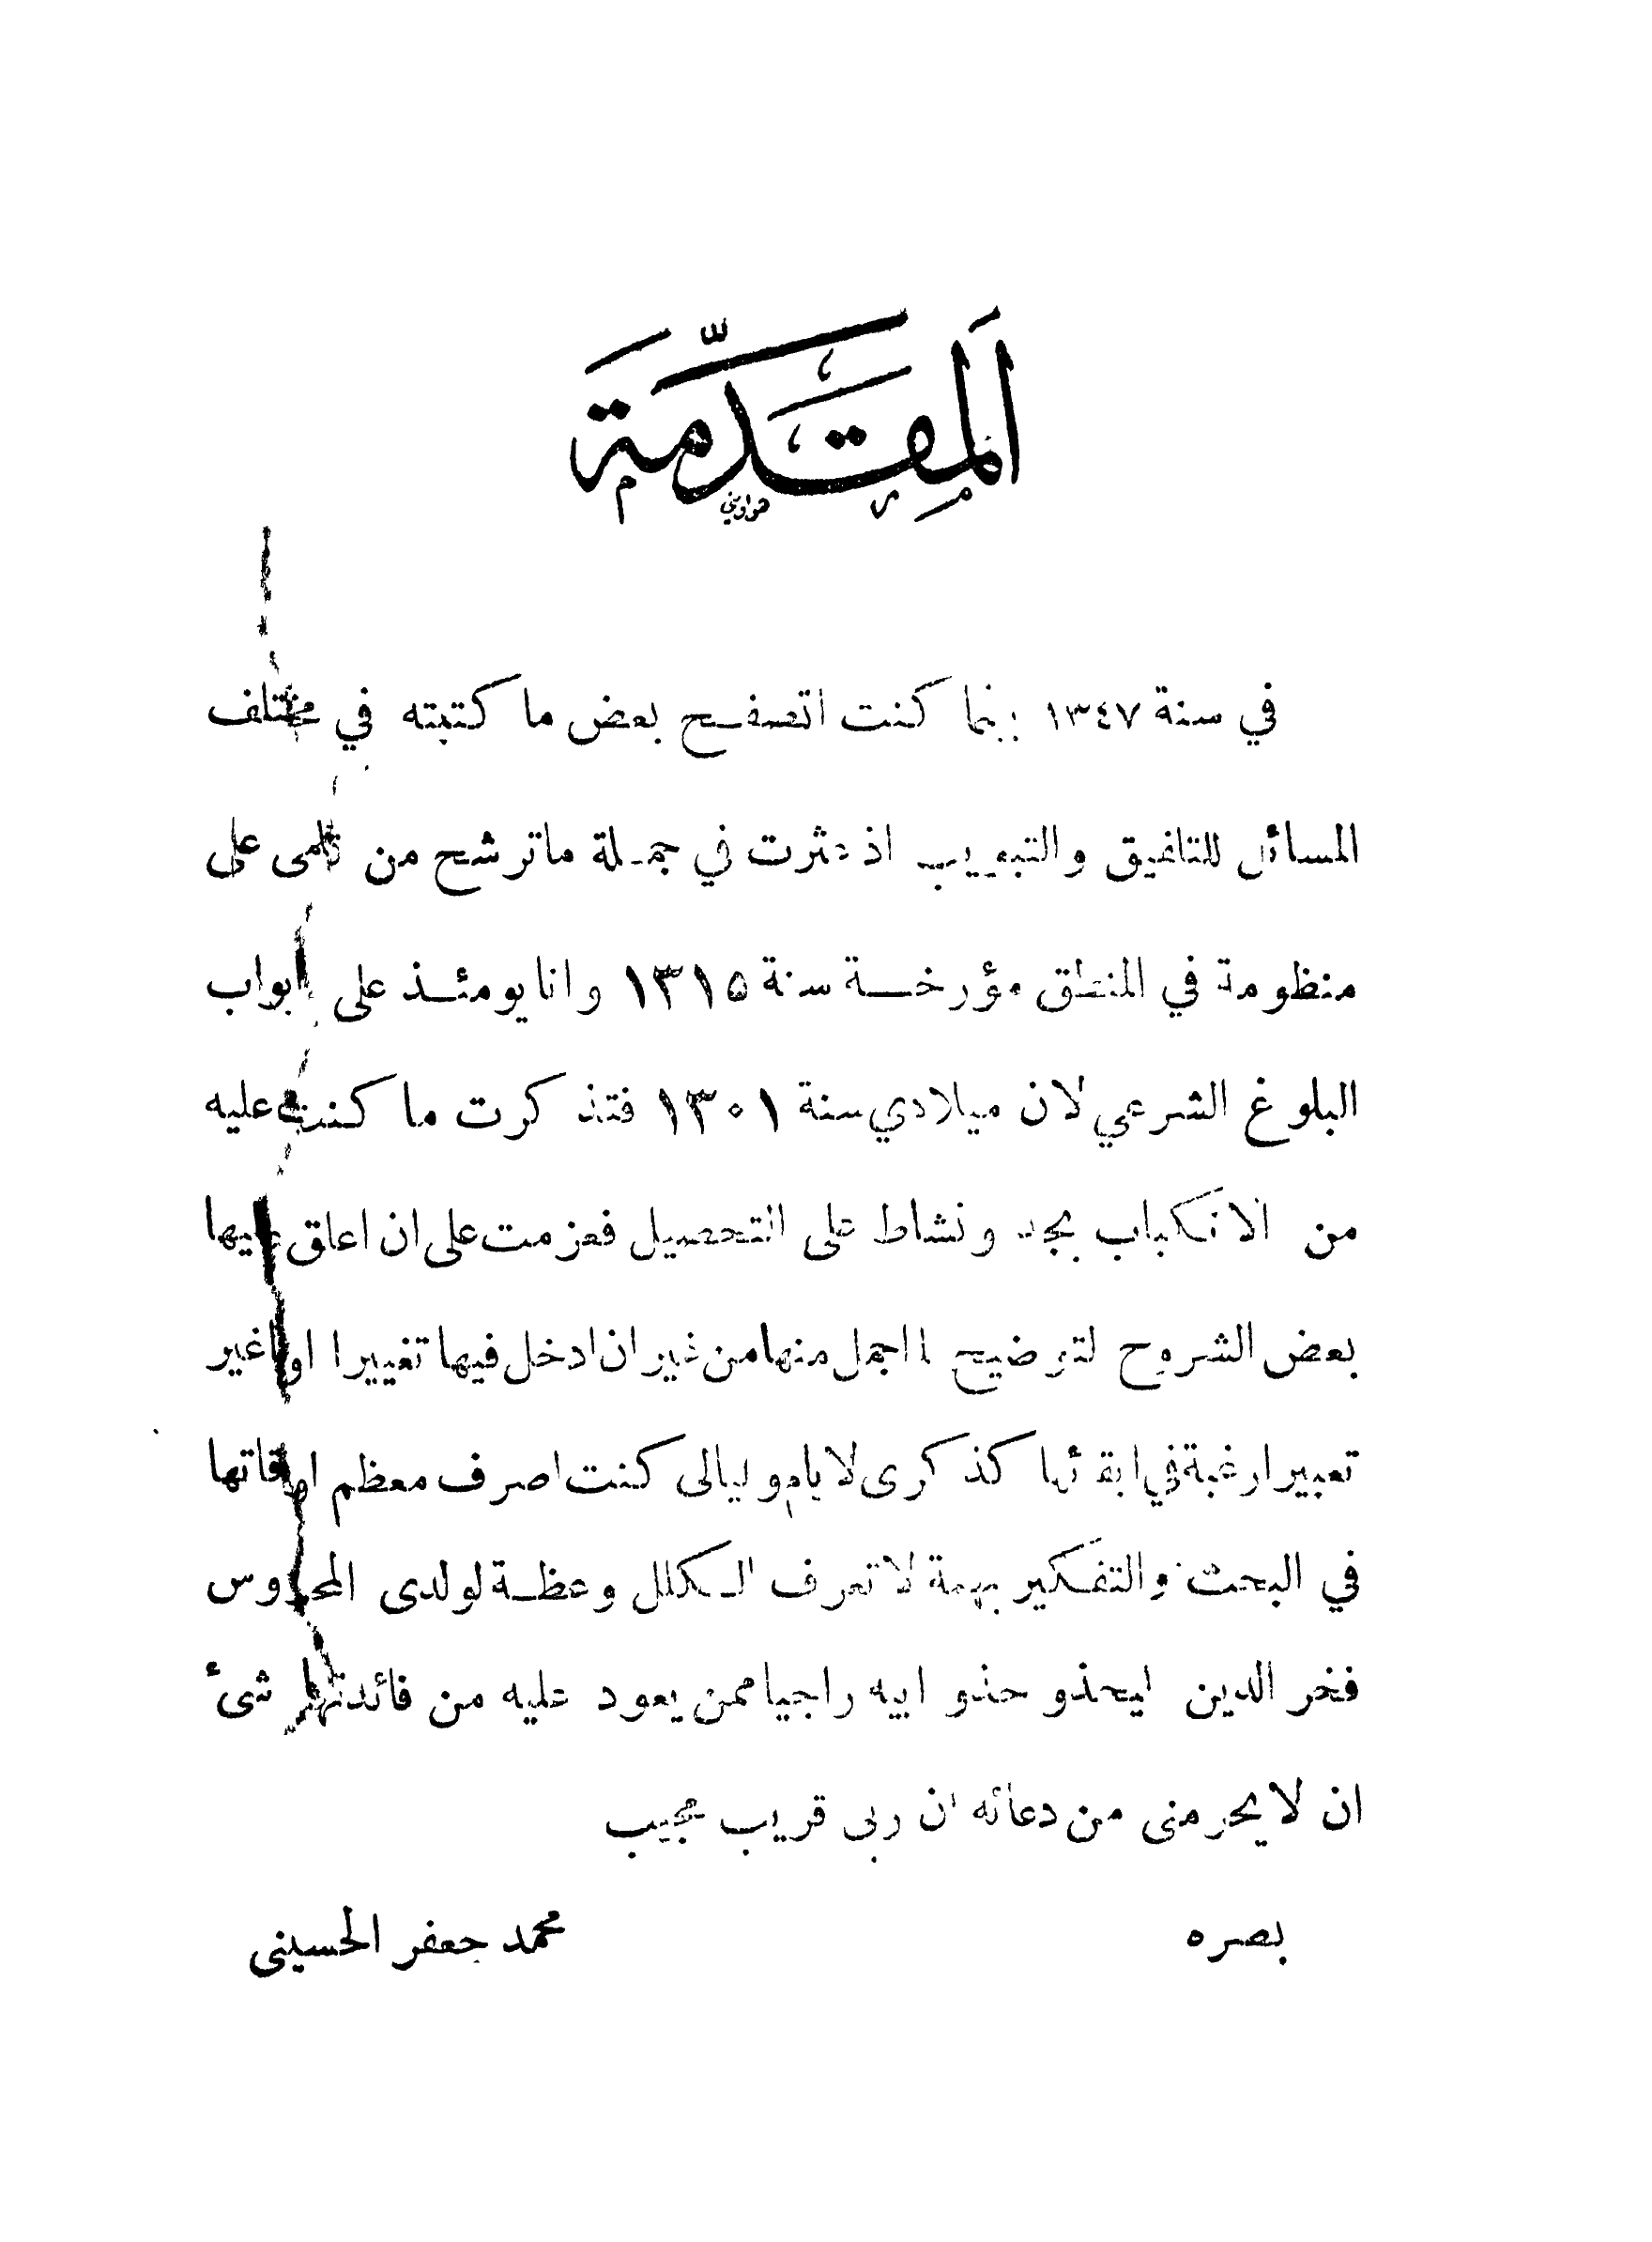 المقدمة
هواويني
في سنة ١٣٤٧ بينما كنت اتصفح بعض ما كتبته في مختلف
المسائل للتلفيق والتبويب اذ عثرت في جملة ماترشح من قلمى على
منظومة في المنطق مؤرخة سنة ١٣١٥ وانا يومئذ على ابواب
البلوغ الشرعي لان ميلادي سنة ١٣٠١ فتذكرت ما كنت عليه
من الانكباب بجد ونشاط على التحصيل فعزمت على ان اعلق عليها
بعض الشروح لتوضيح ما اجمل منها من غير ان ادخل فيها تغييرا او اغير
تعبيرا رغبة في ابقائها كذكرى لايام وليالى كنت اصرف معظم اوقاتها
في البحث والتفكير بهمة لا تعرف الكلل وعظة لولدى المحروس
فخر الدين ليحذو حذو ابيه راجيا ممن يعود عليه من فائدتها شئ
ان لا يحرمنى من دعائه ان ربى قريب مجيب
بصره محمد جعفر الحسينى